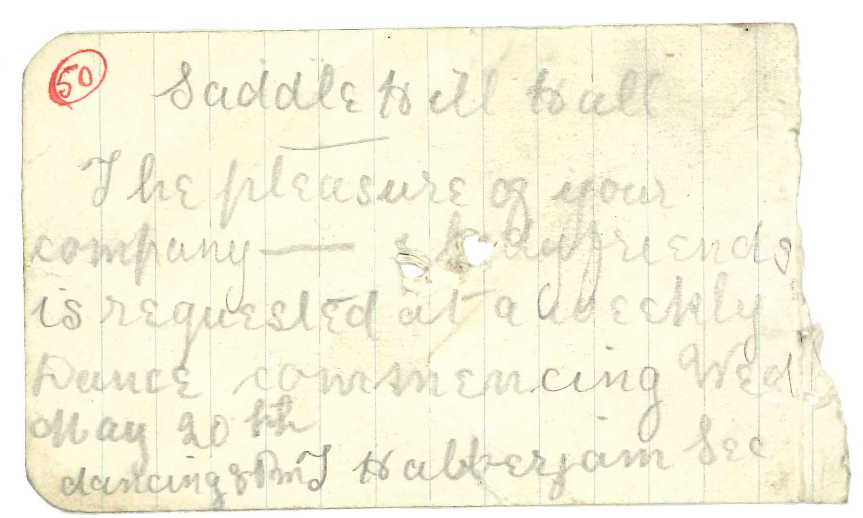 50
Saddle Hill Hall
The pleasure of your
company — & friends
is requested at a weekly
Dance commencing Wed
May 20th
dancing 8 Pm J Habberjam Sec